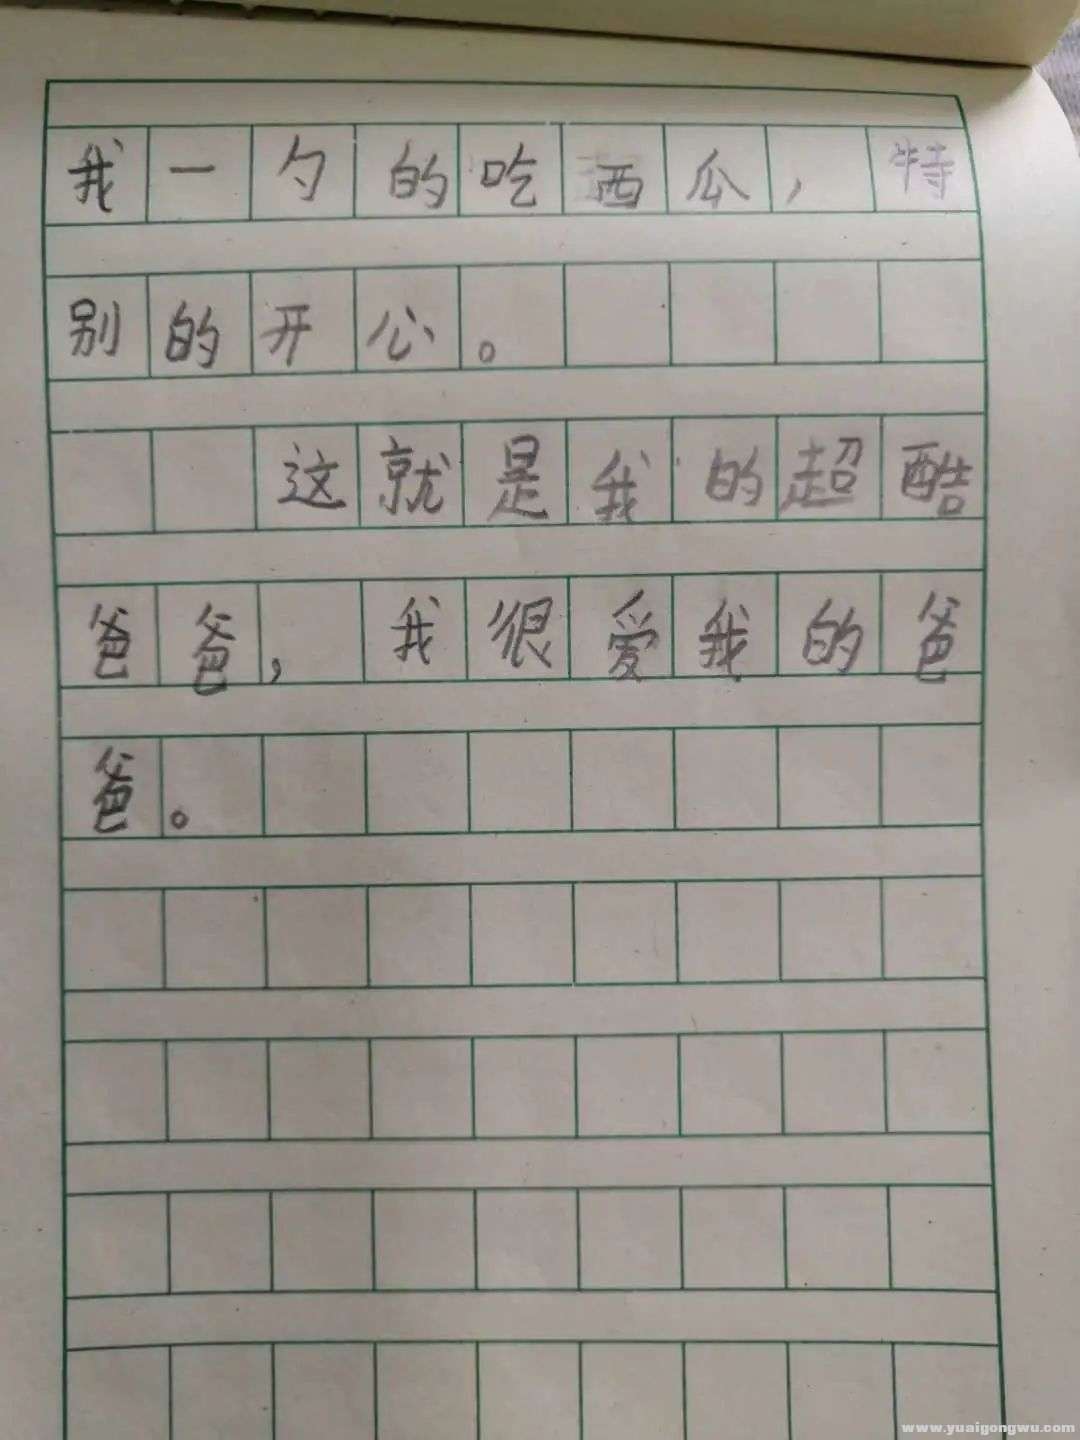 我一勺的吃西瓜，特
别的开心。
这就是我的超酷
爸爸，我很爱我的爸
爸。
www.yuaigongwu.com